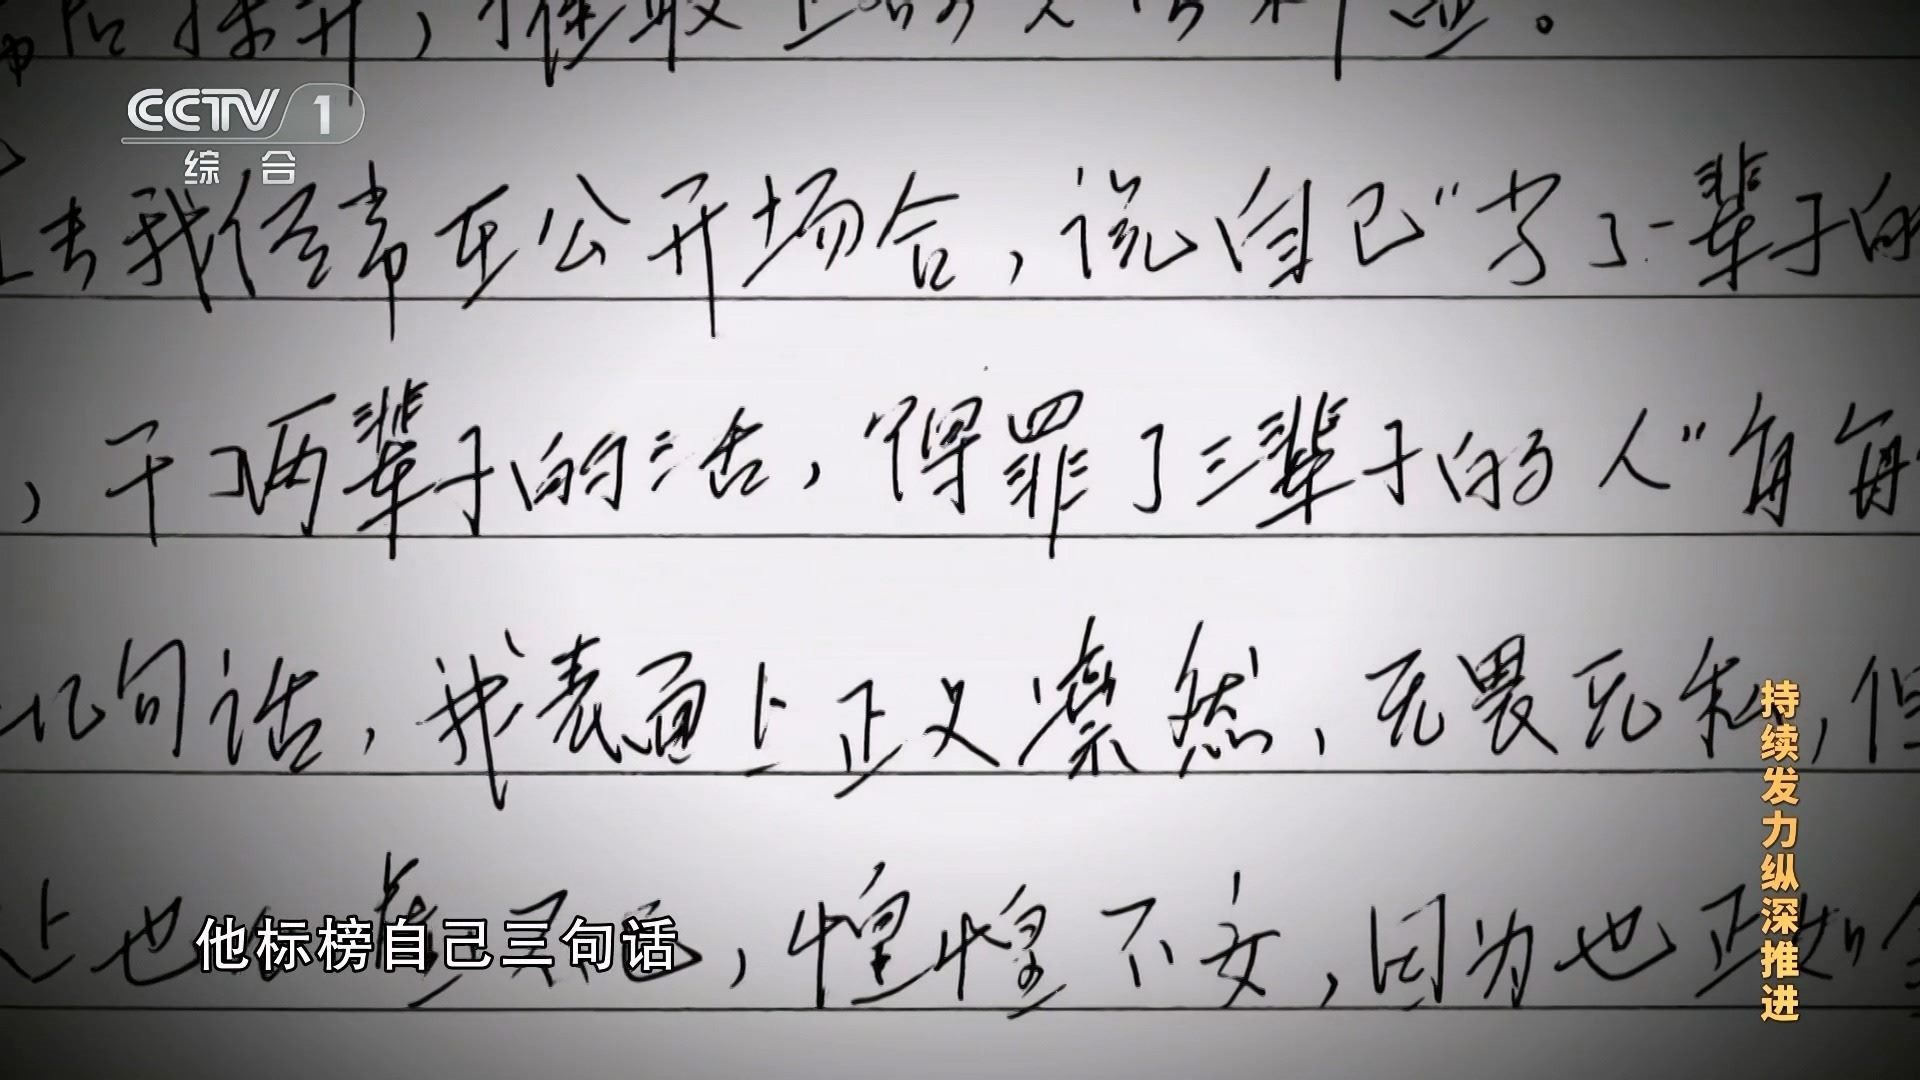 CCTV 1
综合
去我经常在公开场合，说自己"当了一辈子的
，干了两辈子的活，得罪了三辈子的人"每每
句话，我表面上正义凛然，无畏无私，但
上也，惶惶不安，因为也正如
他标榜自己三句话
持续发力纵深推进